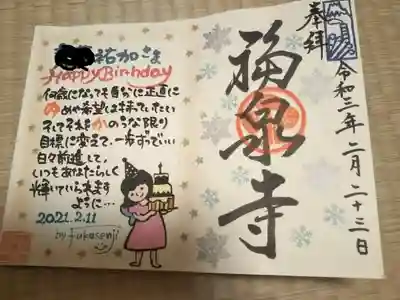 祐加さま
Happy Birthday
何歳になっても自分に正直に
ゆめや希望は持っていたい
そしてそれをかのうな限り
目標に変えて、一歩ずつでいい
日々前進して、
いつもあなたらしく
輝いていられます
ように…
2021.2.11
by fukusenji
奉拝
福泉寺
令和三年二月二十三日